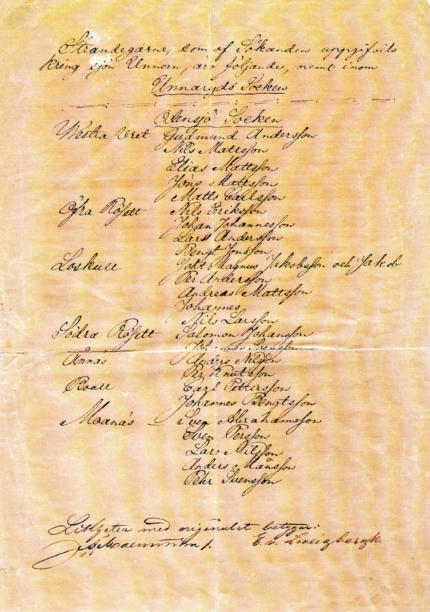 Strandegarne, som af Sökanden uppgifvits
kring sjön Unnern, äro följande, nemt inom
Unnaryds Socken
Socken
Westra Gudmund Andersson
Nils Mattsson
Elias Mattsson
Jöns Mattsson
Matts Carlsson
Öfra Nils Eriksson
Johan Johannesson
Lars Andersson
Bengt Jonsson
Loskull Joh: Magnus Jakobsson och Jakob
Per Andersson
Andreas Mattsson
Johannes
Nils Larsson
Södra Salomon Johansson
Svensson
Ånnäs Anders Nilsson
Per Knutsson
Carl Pettersson
Johannes Bengtsson
Moanäs Sven Abrahamsson
Sven Persson
Lars Nilsson
Anders Månsson
Pehr Svensson
med originalet betygar: